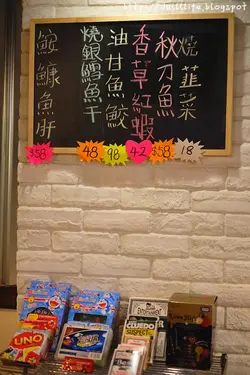 http://ullllife.blogspot
燒韮菜
秋刀魚
香草紅蝦
油甘魚鮫
燒銀鱈魚干
鮟鱇魚肝
$58
48
98
42
$58
18
UNO
CLUEDO
SUSPECT